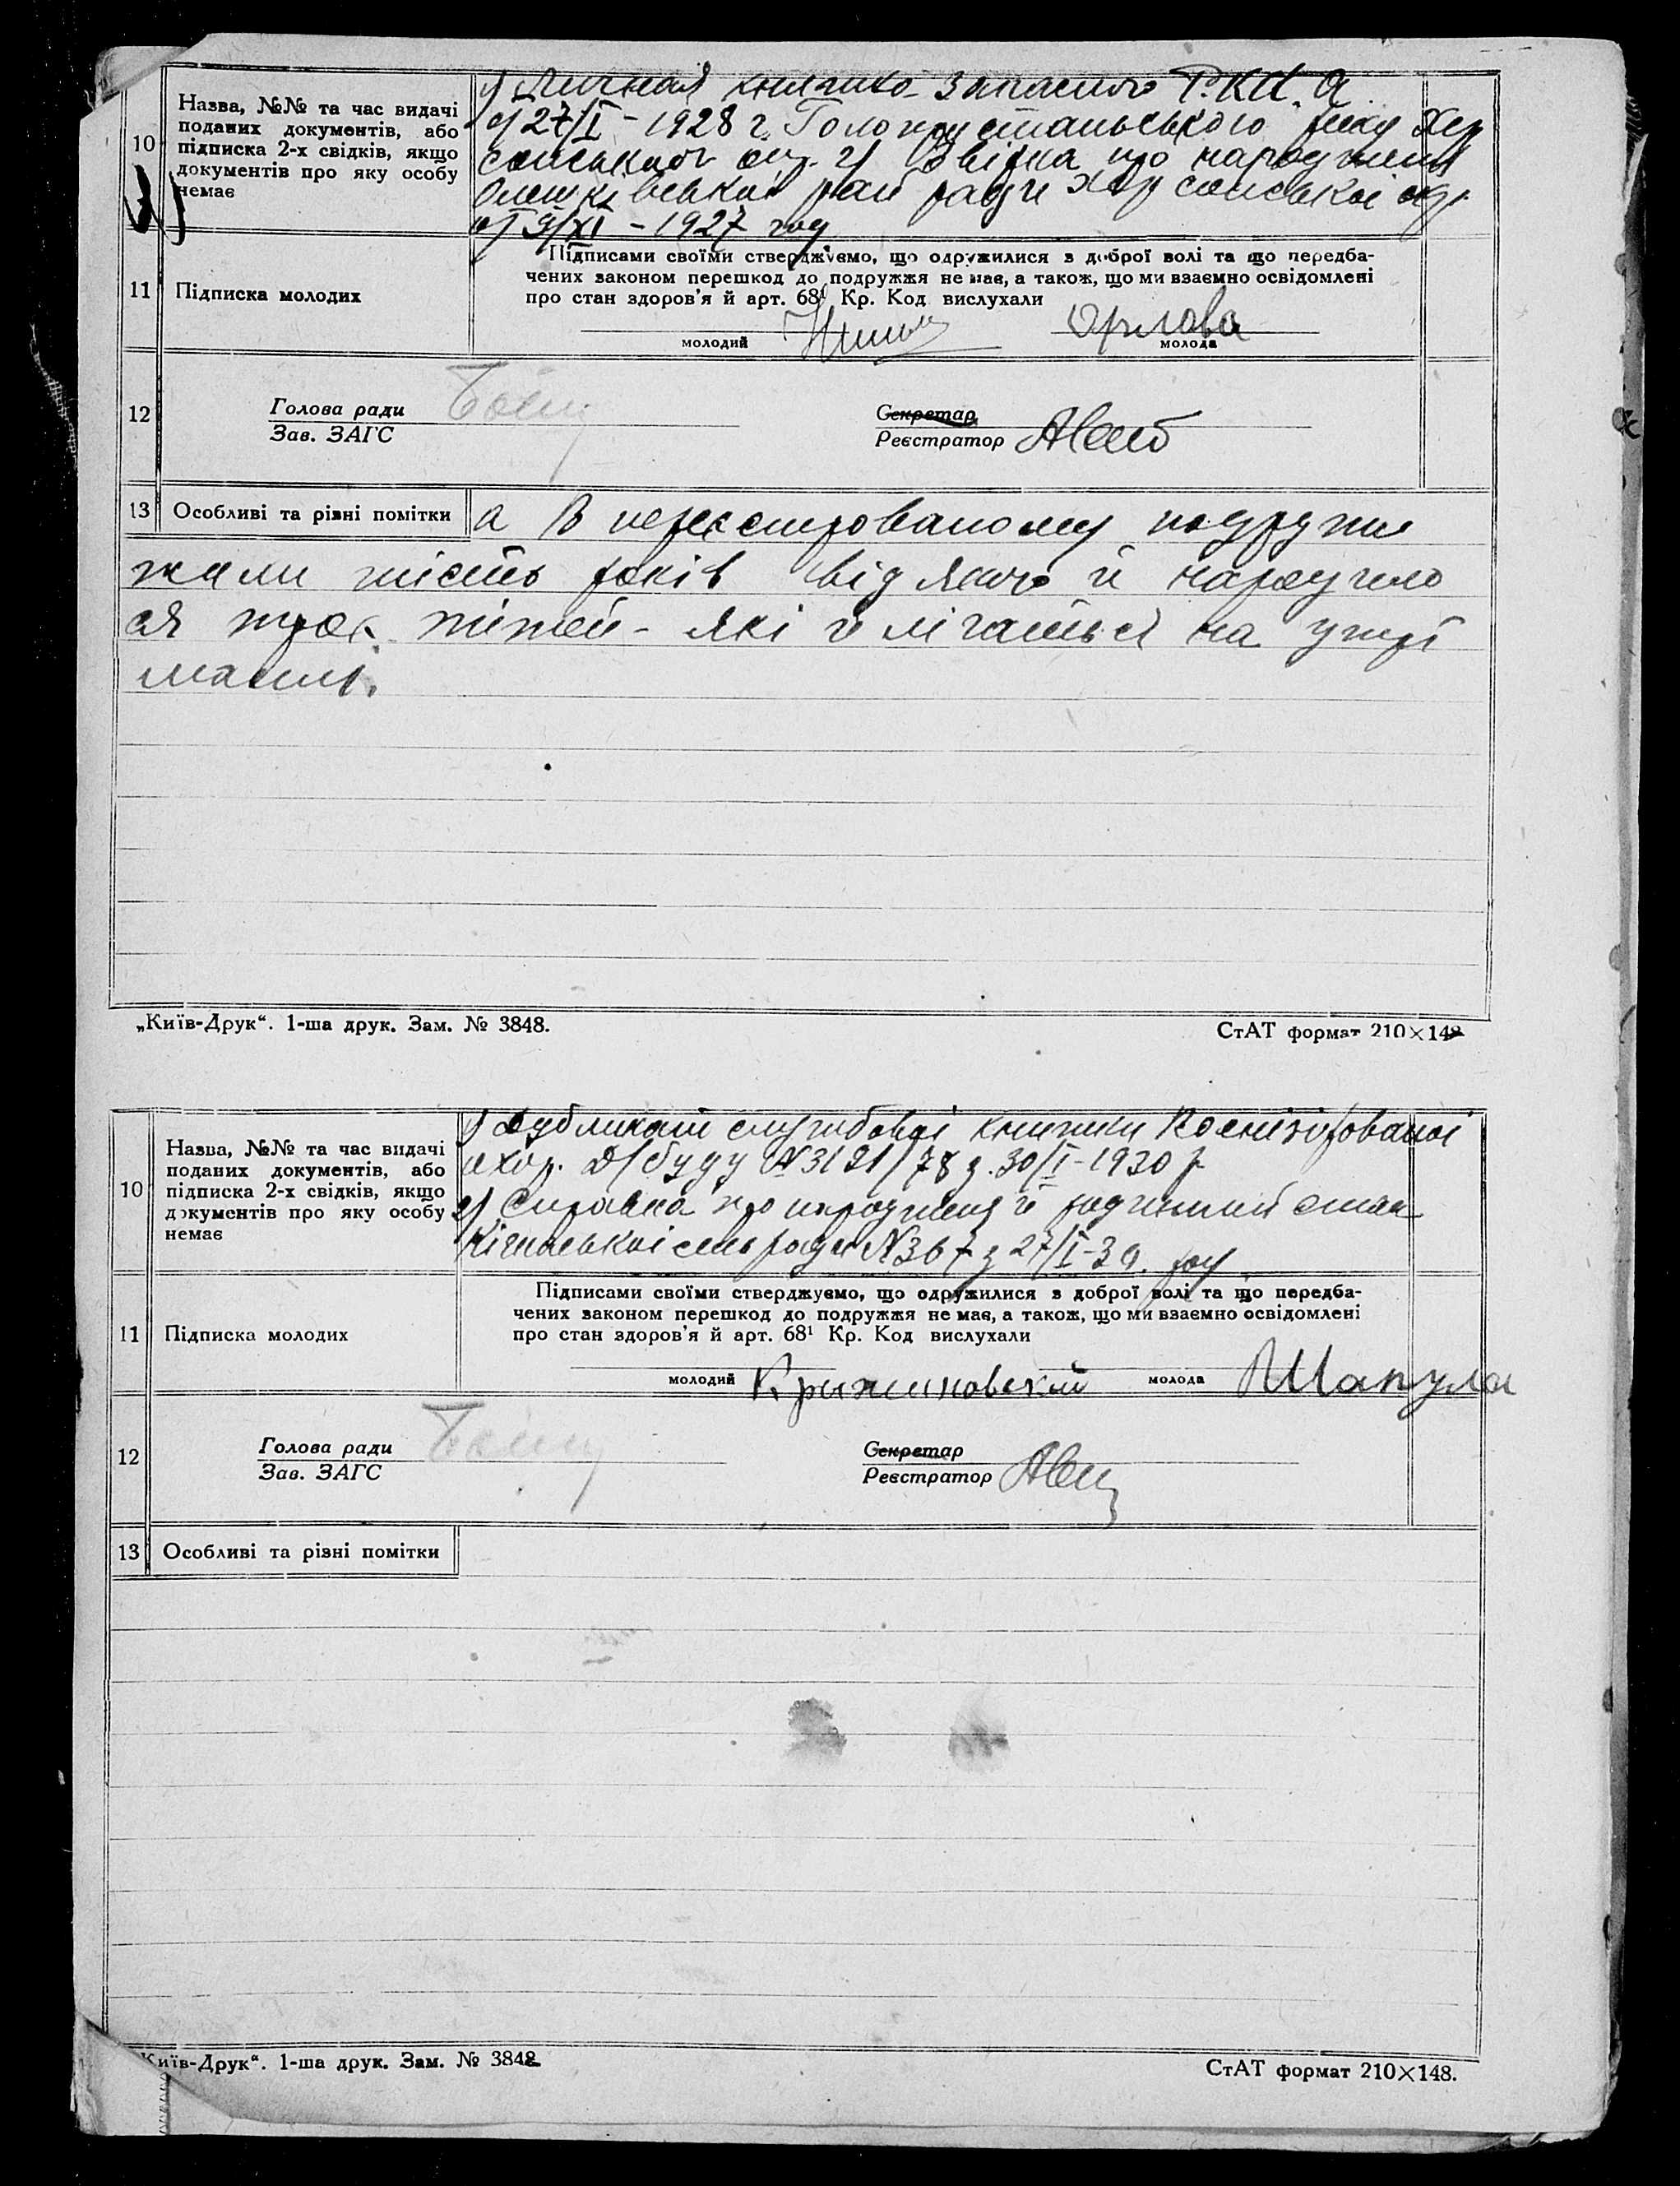 10
Назва, №№ та час видачі
поданих документів, або
підписка 2-х свідків, якщо
документів про яку особу
немає
1) Личная книжка запасного Р.К.К.А
от 27/I - 1928 г. Голопристанського рику Хер
сонської окр. 2) Звідка про народження
Олешківської рай ради Херсонської окр.
от 9/XI - 1927 году
11
Підписка молодих
Підписами своїми стверджуємо, що одружилися з доброї волі та що передба-
чених законом перешкод до подружжя не має, а також, що ми взаємно освідомлені
про стан здоров'я й арт. 68¹ Кр. Код вислухали
молодий
Орлова
молода
12
Голова ради
Зав. ЗАГС
Секретар
Реєстратор
13
Особливі та різні помітки
а В нереєстрованому подружжі
жили шість років від якого й народило
ся троє дітей - які й лічаться на утрі
манні.
„Київ-Друк“. 1-ша друк. Зам. № 3848.
СтАТ формат 210×148
10
Назва, №№ та час видачі
поданих документів, або
підписка 2-х свідків, якщо
документів про яку особу
немає
1) Дубликат службової книжки Воєнізірованої
охор. № 3121/78 з. 30/I - 1930 р
2) Справка про народження й родинний стан
сельради № 367 з 27/I - 30. году
11
Підписка молодих
Підписами своїми стверджуємо, що одружилися з доброї волі та що передба-
чених законом перешкод до подружжя не має, а також, що ми взаємно освідомлені
про стан здоров'я й арт. 68¹ Кр. Код вислухали
молодий
Крижановский
молода
Шапула
12
Голова ради
Зав. ЗАГС
Секретар
Реєстратор
13
Особливі та різні помітки
Київ-Друк“. 1-ша друк. Зам. № 3848
СтАТ формат 210×148.